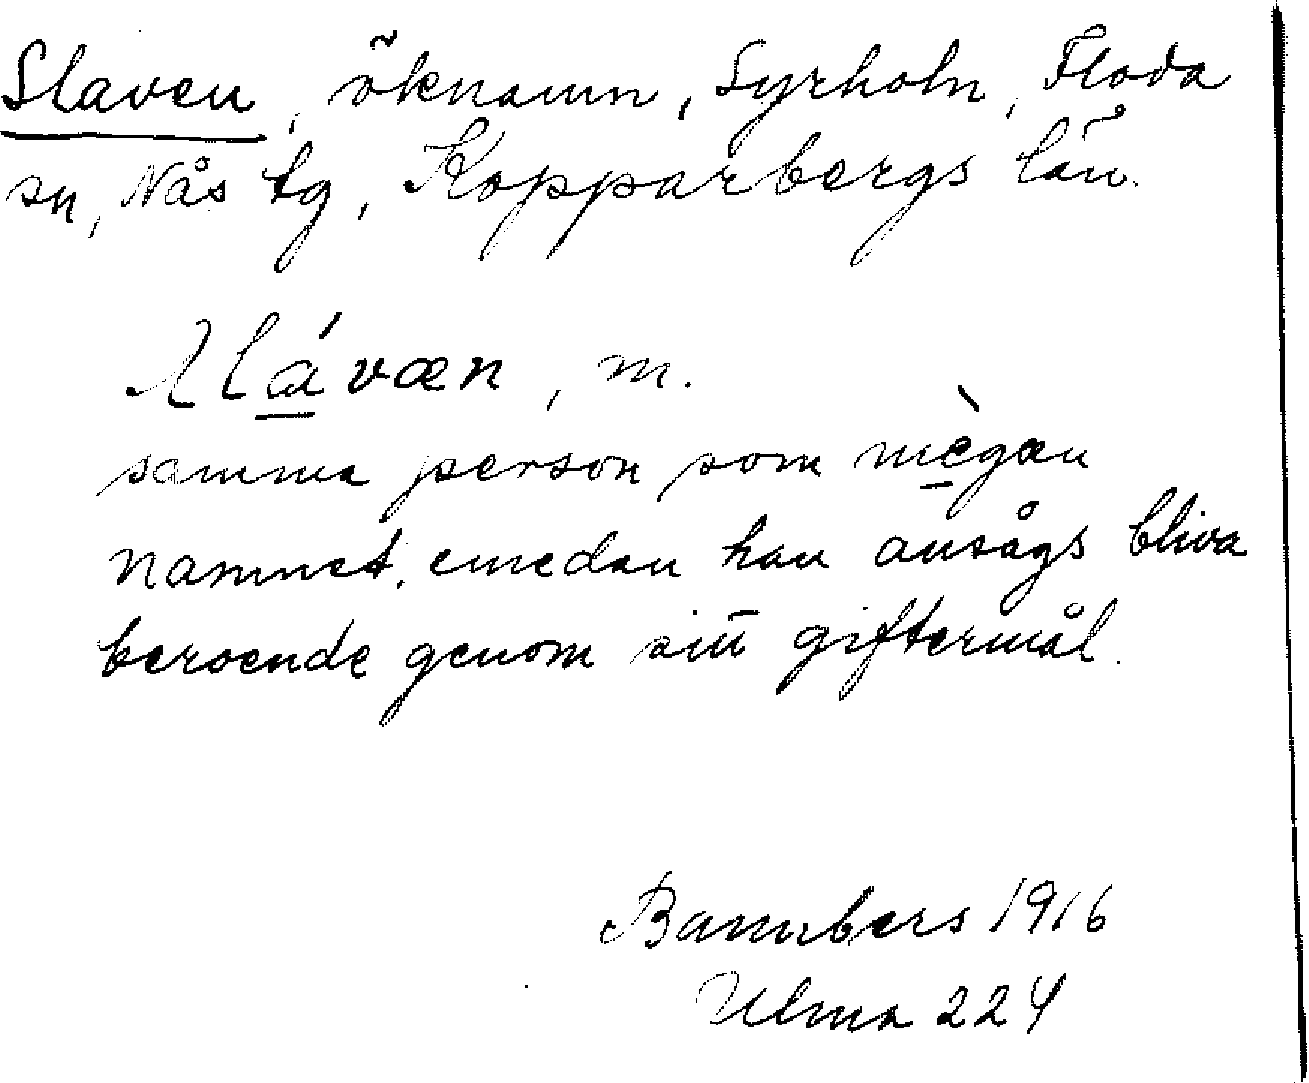 Slaven, öknamn, Syrholn, Floda
sn, Nås tg, Kopparbergs län.
slávæn, m.
samma person som mègæn
namnet, emedan han ansågs bliva
beroende genom sitt giftermål.
Bannbers 1916
Ulma 224